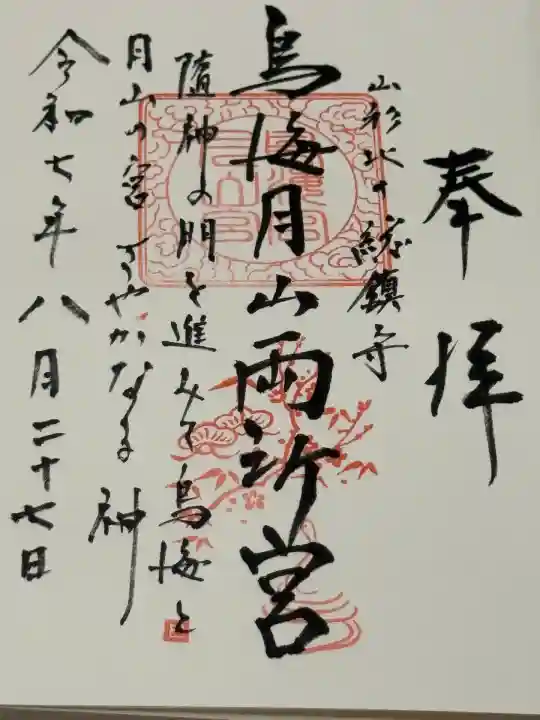 奉拝
山形北の総鎮守
鳥海月山両所宮
随神の門を進みて鳥海と
月山の宮さやかなる神
令和七年八月二十七日